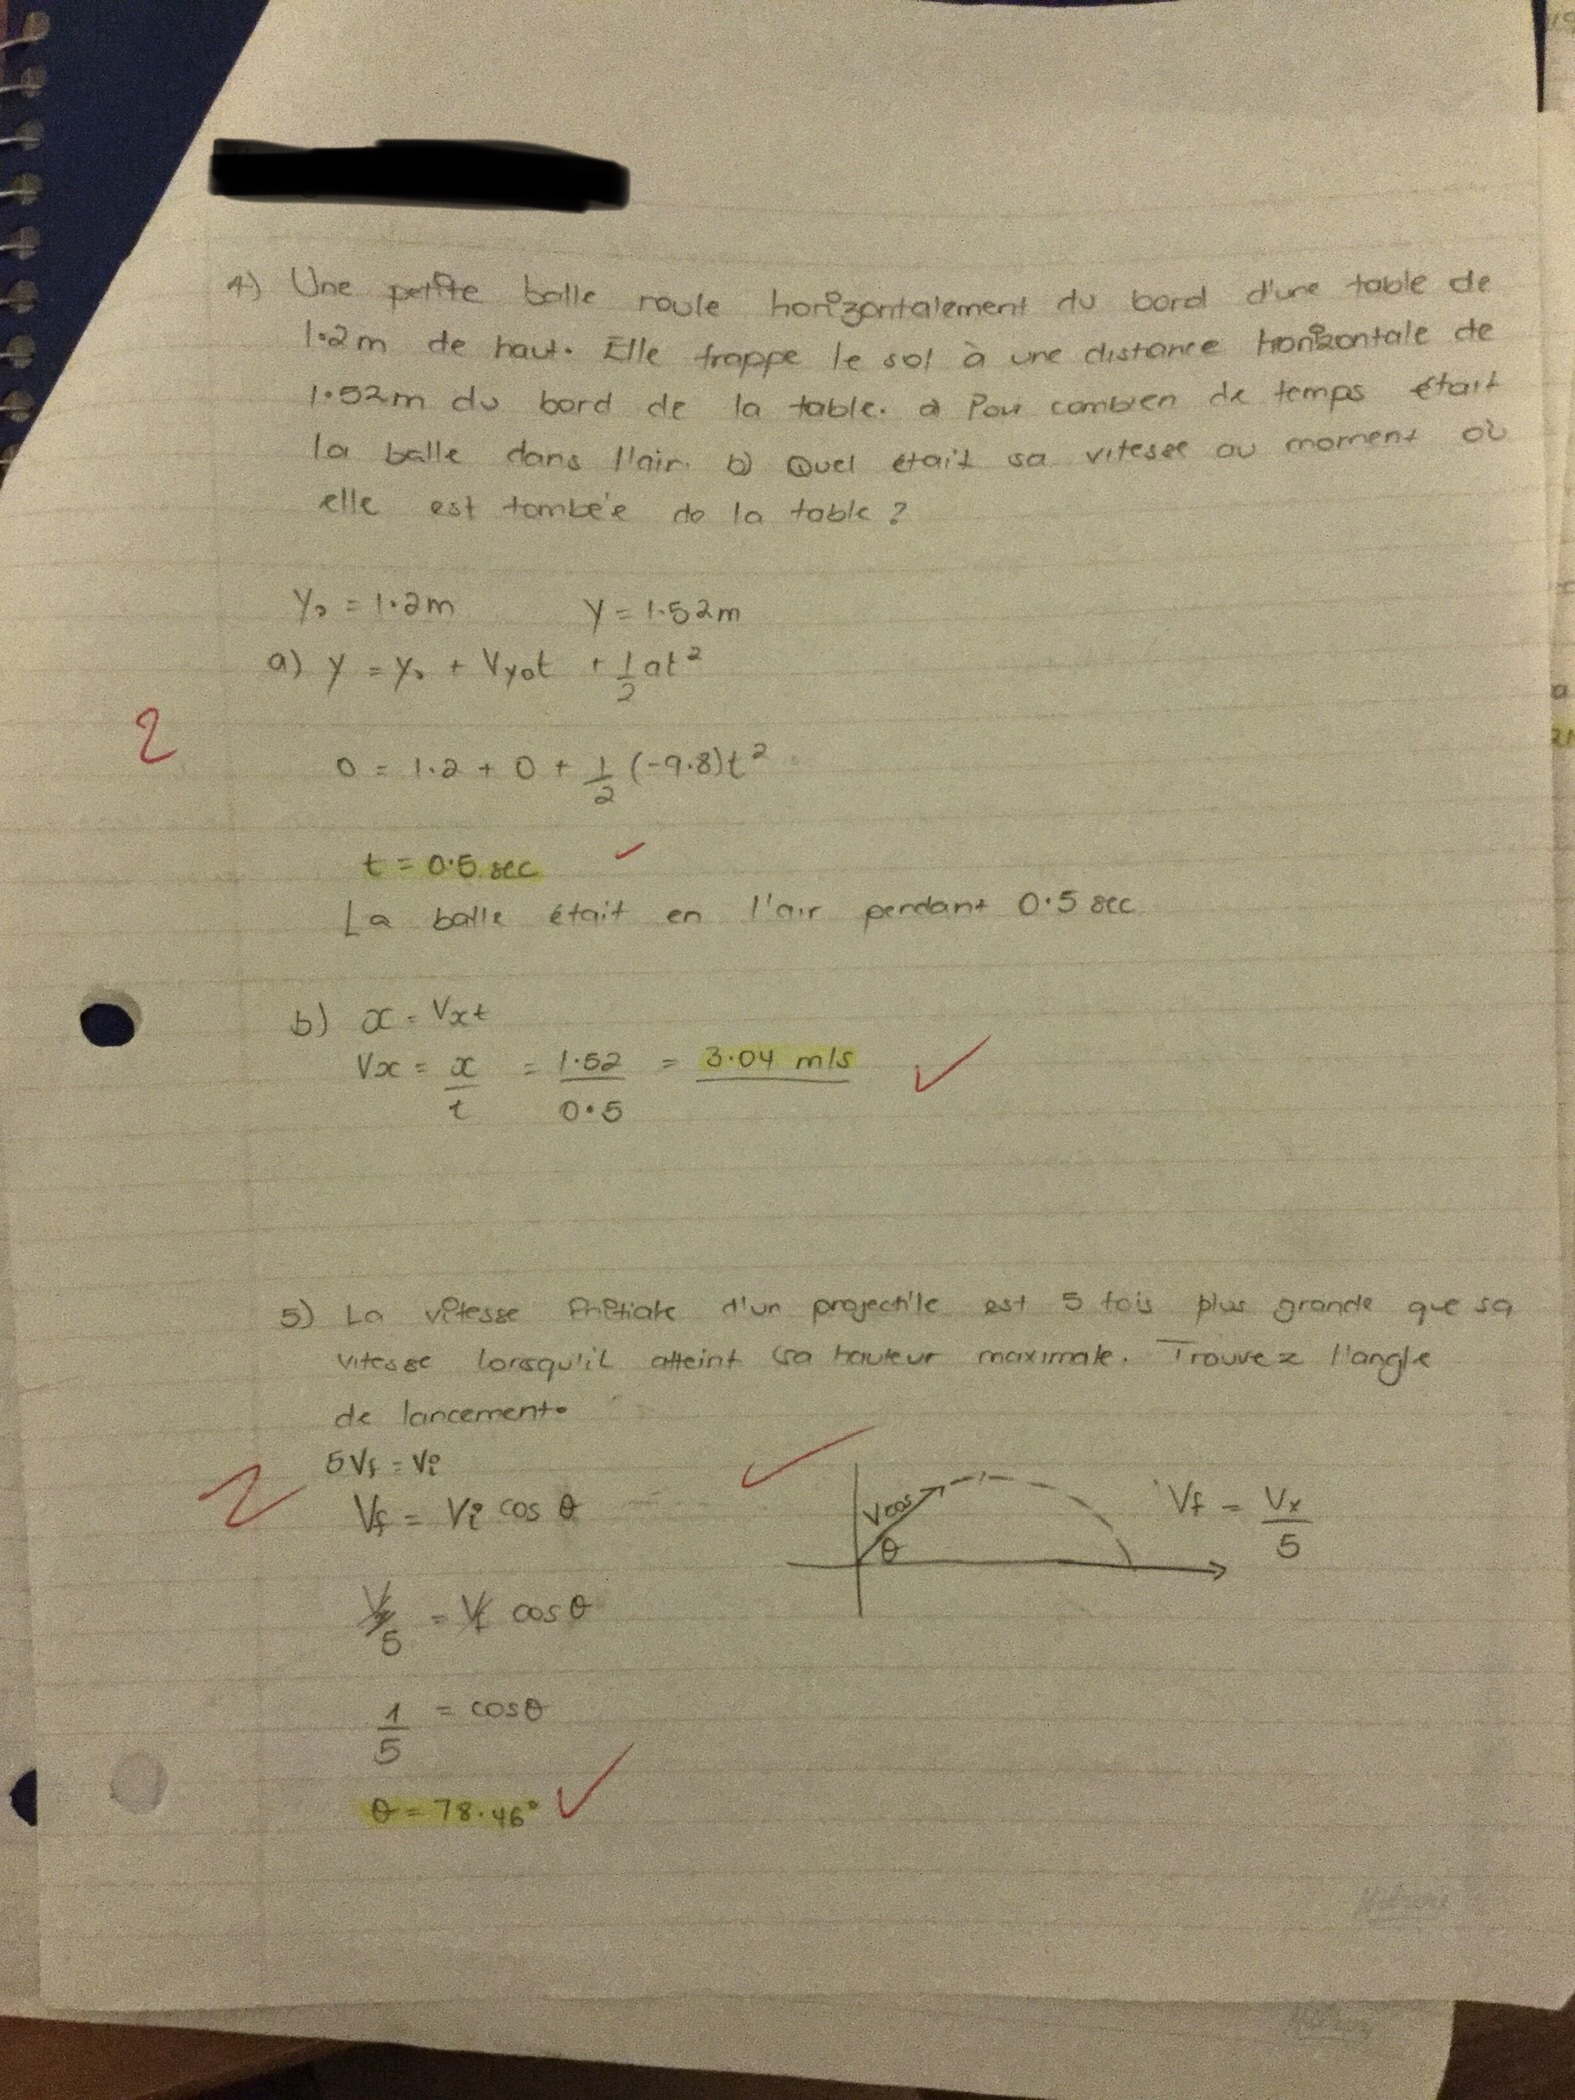 4) Une petite balle roule horizontalement du bord d'une table de
1.2m de haut. Elle frappe le sol à une distance horizontale de
1.52m du bord de la table. a) Pour combien de temps était
la balle dans l'air. b) Quel était sa vitesse au moment où
elle est tombée de la table ?
y₀ = 1.2m y = 1.52m
a) y = y₀ + Vy₀t + 1/2 at²
2
0 = 1.2 + 0 + 1/2 (-9.8)t²
t = 0.5 sec ✓
La balle était en l'air pendant 0.5 sec
b) x = Vxt
Vx = x/t = 1.52/0.5 = 3.04 m/s ✓
5) La vitesse initiale d'un projectile est 5 fois plus grande que sa
vitesse lorsqu'il atteint sa hauteur maximale. Trouvez l'angle
de lancement.
5Vf = Vi
2
Vf = Vi cos θ ✓
Vcos
θ
Vf = Vx/5
5 = cos θ
1/5 = cosθ
θ = 78.46° ✓